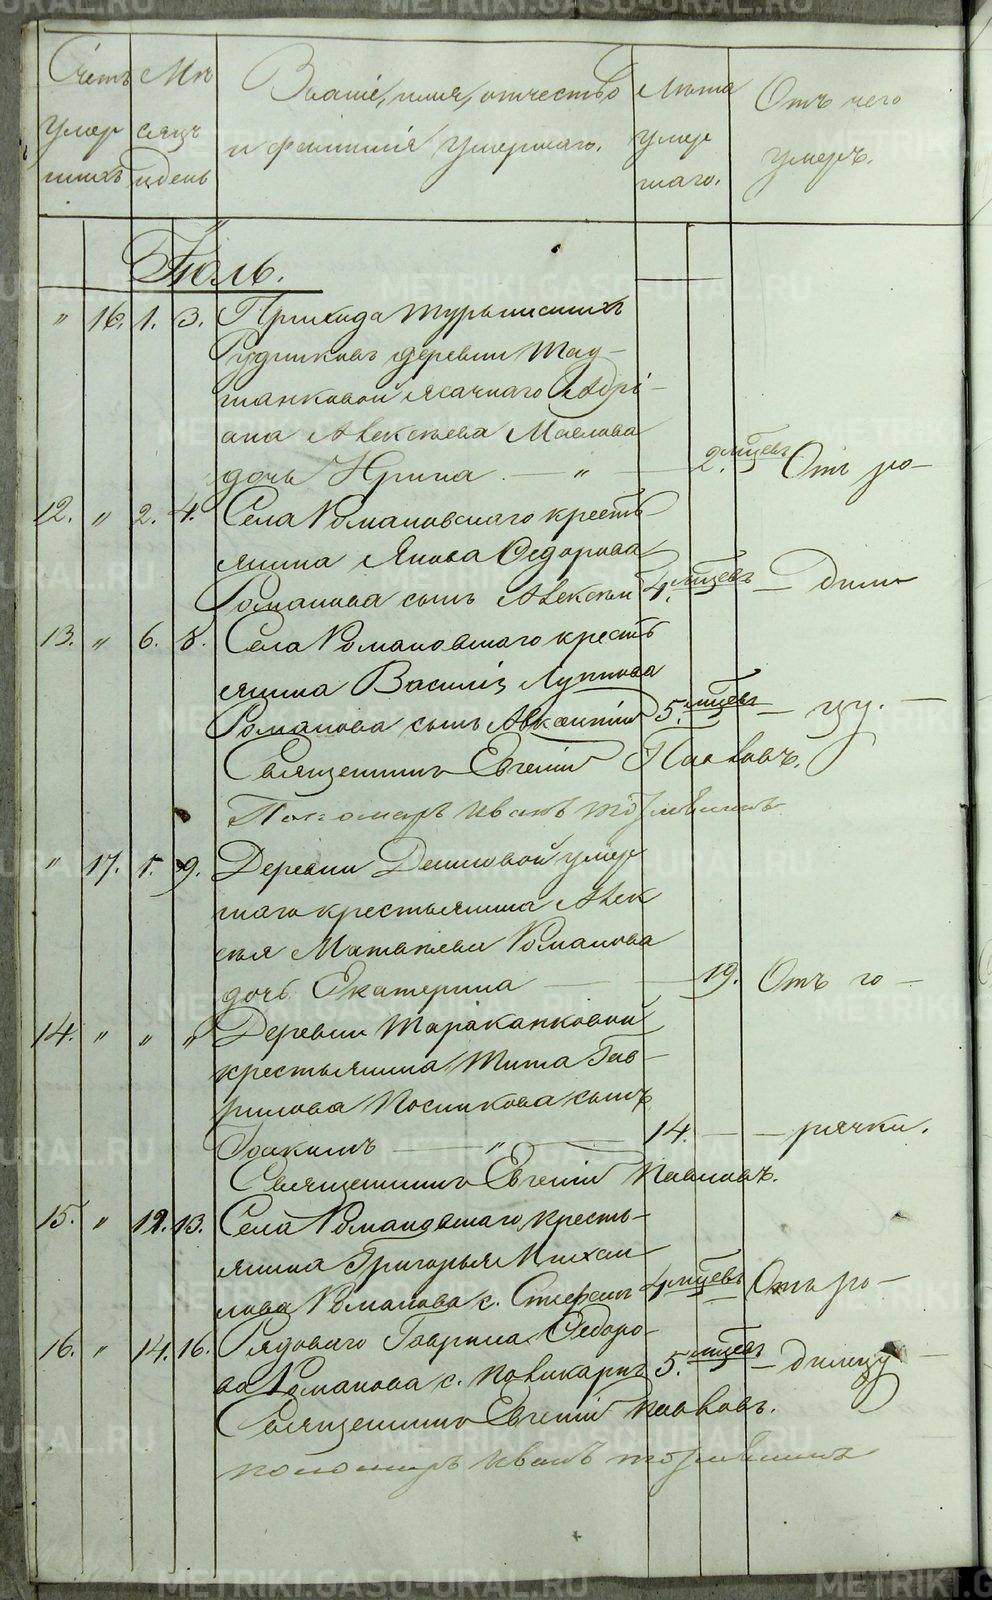 Счетъ умершихъ
Мѣсяцъ и день
Званіе, имя, отчество и фамилія умершаго.
Лѣта умершаго.
Отъ чего умеръ.
Іюль.
" 16. 1. 3. Прихода Турьинскихъ
Рудниковъ деревни
ясачнаго Адрі-
ана Алексѣева Маслова
дочь Ирина — " — 2. мѣсцевъ Отъ ро-
12. " 2. 4. Села Романовскаго кресть-
янина Якова Ѳедорова
Романова сынъ Алексѣй 4. мѣсцевъ — дим
13. " 6. 8. Села Романовскаго кресть-
янина Василія Луппова
Романова сынъ Авксентій 5. мѣсцевъ — цу. —
Священникъ Евгеній Павловъ.
Пономарь Иванъ
" 17. 8. 9. Деревни умер-
шаго крестьянина Алек-
сѣя Матвѣева Романова
дочь Екатерина — 19. Отъ го-
14. " " " Деревни Тараканковой
крестьянина Тита Гав-
рилова Посникова сынъ
Іоакимъ — " — 14. — рячки.
Священникъ Евгеній Павловъ.
15. " 12. 13. Села Романовскаго кресть-
янина Григорья Михаи-
лова Романова с. Стефанъ 4 мѣсцевъ Отъ ро-
16. " 14. 16. Рядоваго Гаврила Ѳедоро-
ва Романова с. Поликарпъ 5. мѣсцевъ — димцу
Священникъ Евгеній Павловъ.
пономарь Иванъ
METRIKI.GASO-URAL.RU